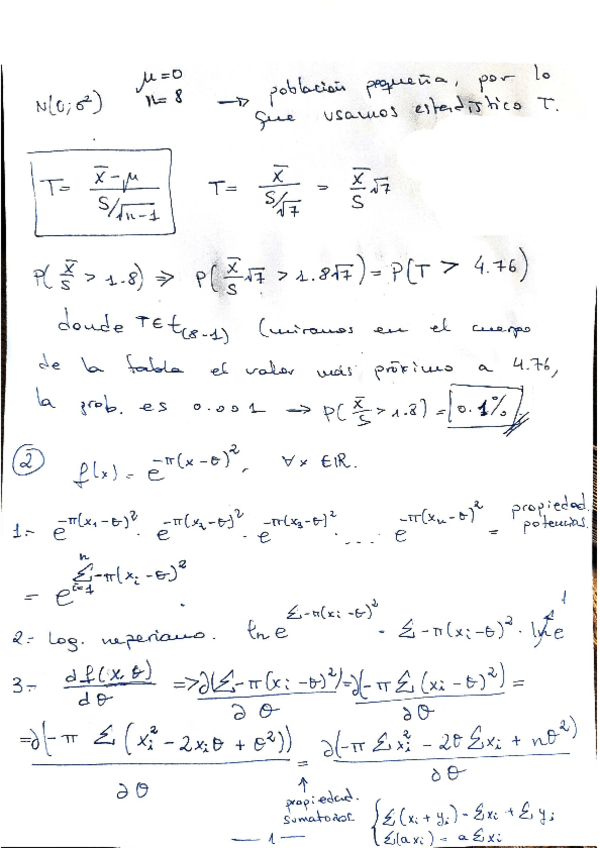 N(0;σ²) μ=0 n=8 → población pequeña, por lo
que usamos estadístico T.
T= (x̄-μ)/(S/√(n-1)) T= x̄/(S/√7) = x̄/S √7
P(x̄/S > 1.8) ⇒ P(x̄/S √7 > 1.8√7) = P(T > 4.76)
donde T∈t(8-1) (miramos en el cuerpo
de la tabla el valor más próximo a 4.76,
la prob. es 0.001 → P(x̄/S > 1.8) = 0.1%
② f(x) = e^(-π(x-θ)²), ∀x ∈ℝ.
1.- e^(-π(x₁-θ)²) · e^(-π(x₂-θ)²) · e^(-π(x₃-θ)²) · ... · e^(-π(xₙ-θ)²) = propiedad potencias.
= e^(Σᵢ₌₁ⁿ -π(xᵢ-θ)²).
2.- Log. neperiano. ln e^(Σ-π(xᵢ-θ)²) = Σ-π(xᵢ-θ)² · ln e 1
3.- df(x,θ)/dθ => ∂(Σ-π(xᵢ-θ)²)/∂θ = ∂(-π Σ(xᵢ-θ)²)/∂θ =
= ∂(-π Σ(xᵢ² - 2xᵢθ + θ²))/∂θ = ∂(-π Σxᵢ² - 2θ Σxᵢ + nθ²)/∂θ
↑
propiedad. sumatorios {Σ(xᵢ + yᵢ) = Σxᵢ + Σyᵢ
Σ(axᵢ) = aΣxᵢ
— 1 —